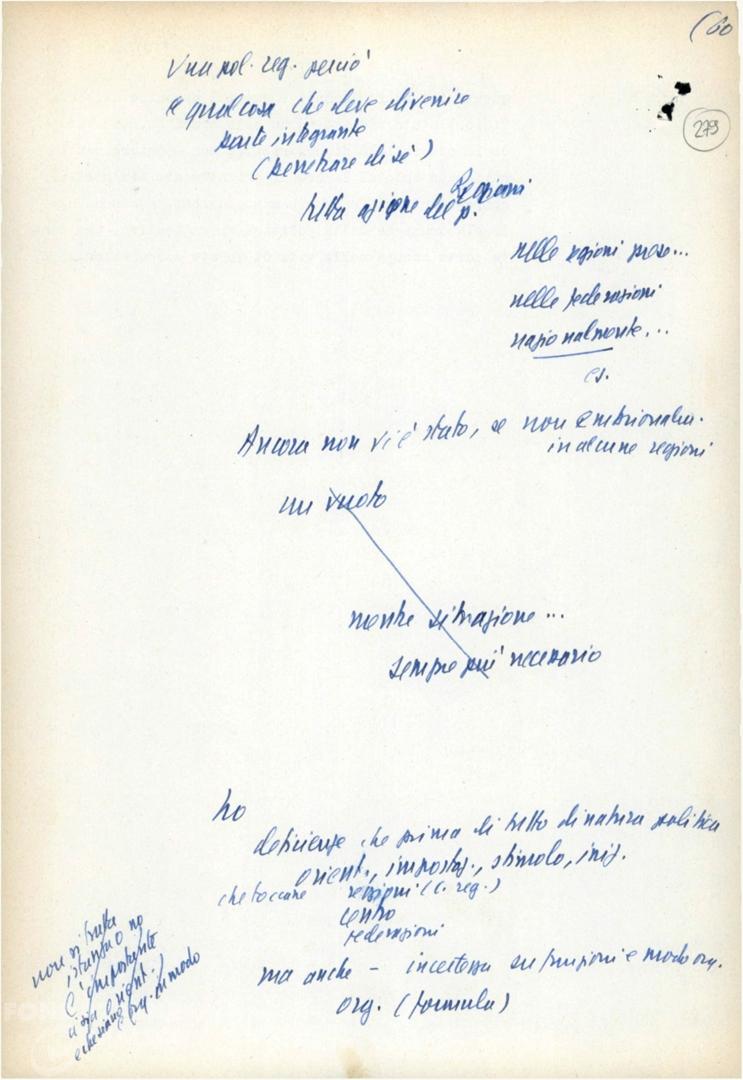 (60
279
Una pol. reg. perciò
è qualcosa che deve divenire
parte integrante
(penetrare di sé)
Regioni
tutta azione del p.
nelle regioni prese...
nelle federazioni
nazionalmente...
es.
Ancora non vi è stato, se non embrionalm.
in alcune regioni
un vuoto
mentre situazione...
sempre più necessario
ho
deficienze che prima di tutto di natura politica
orient., impostaz., stimolo, iniz.
che toccano regioni (c. reg.)
centro
federazioni
ma anche - incertezza su funzioni e modo org.
org. (formula)
non si tratta
è importante
ci sia orient.